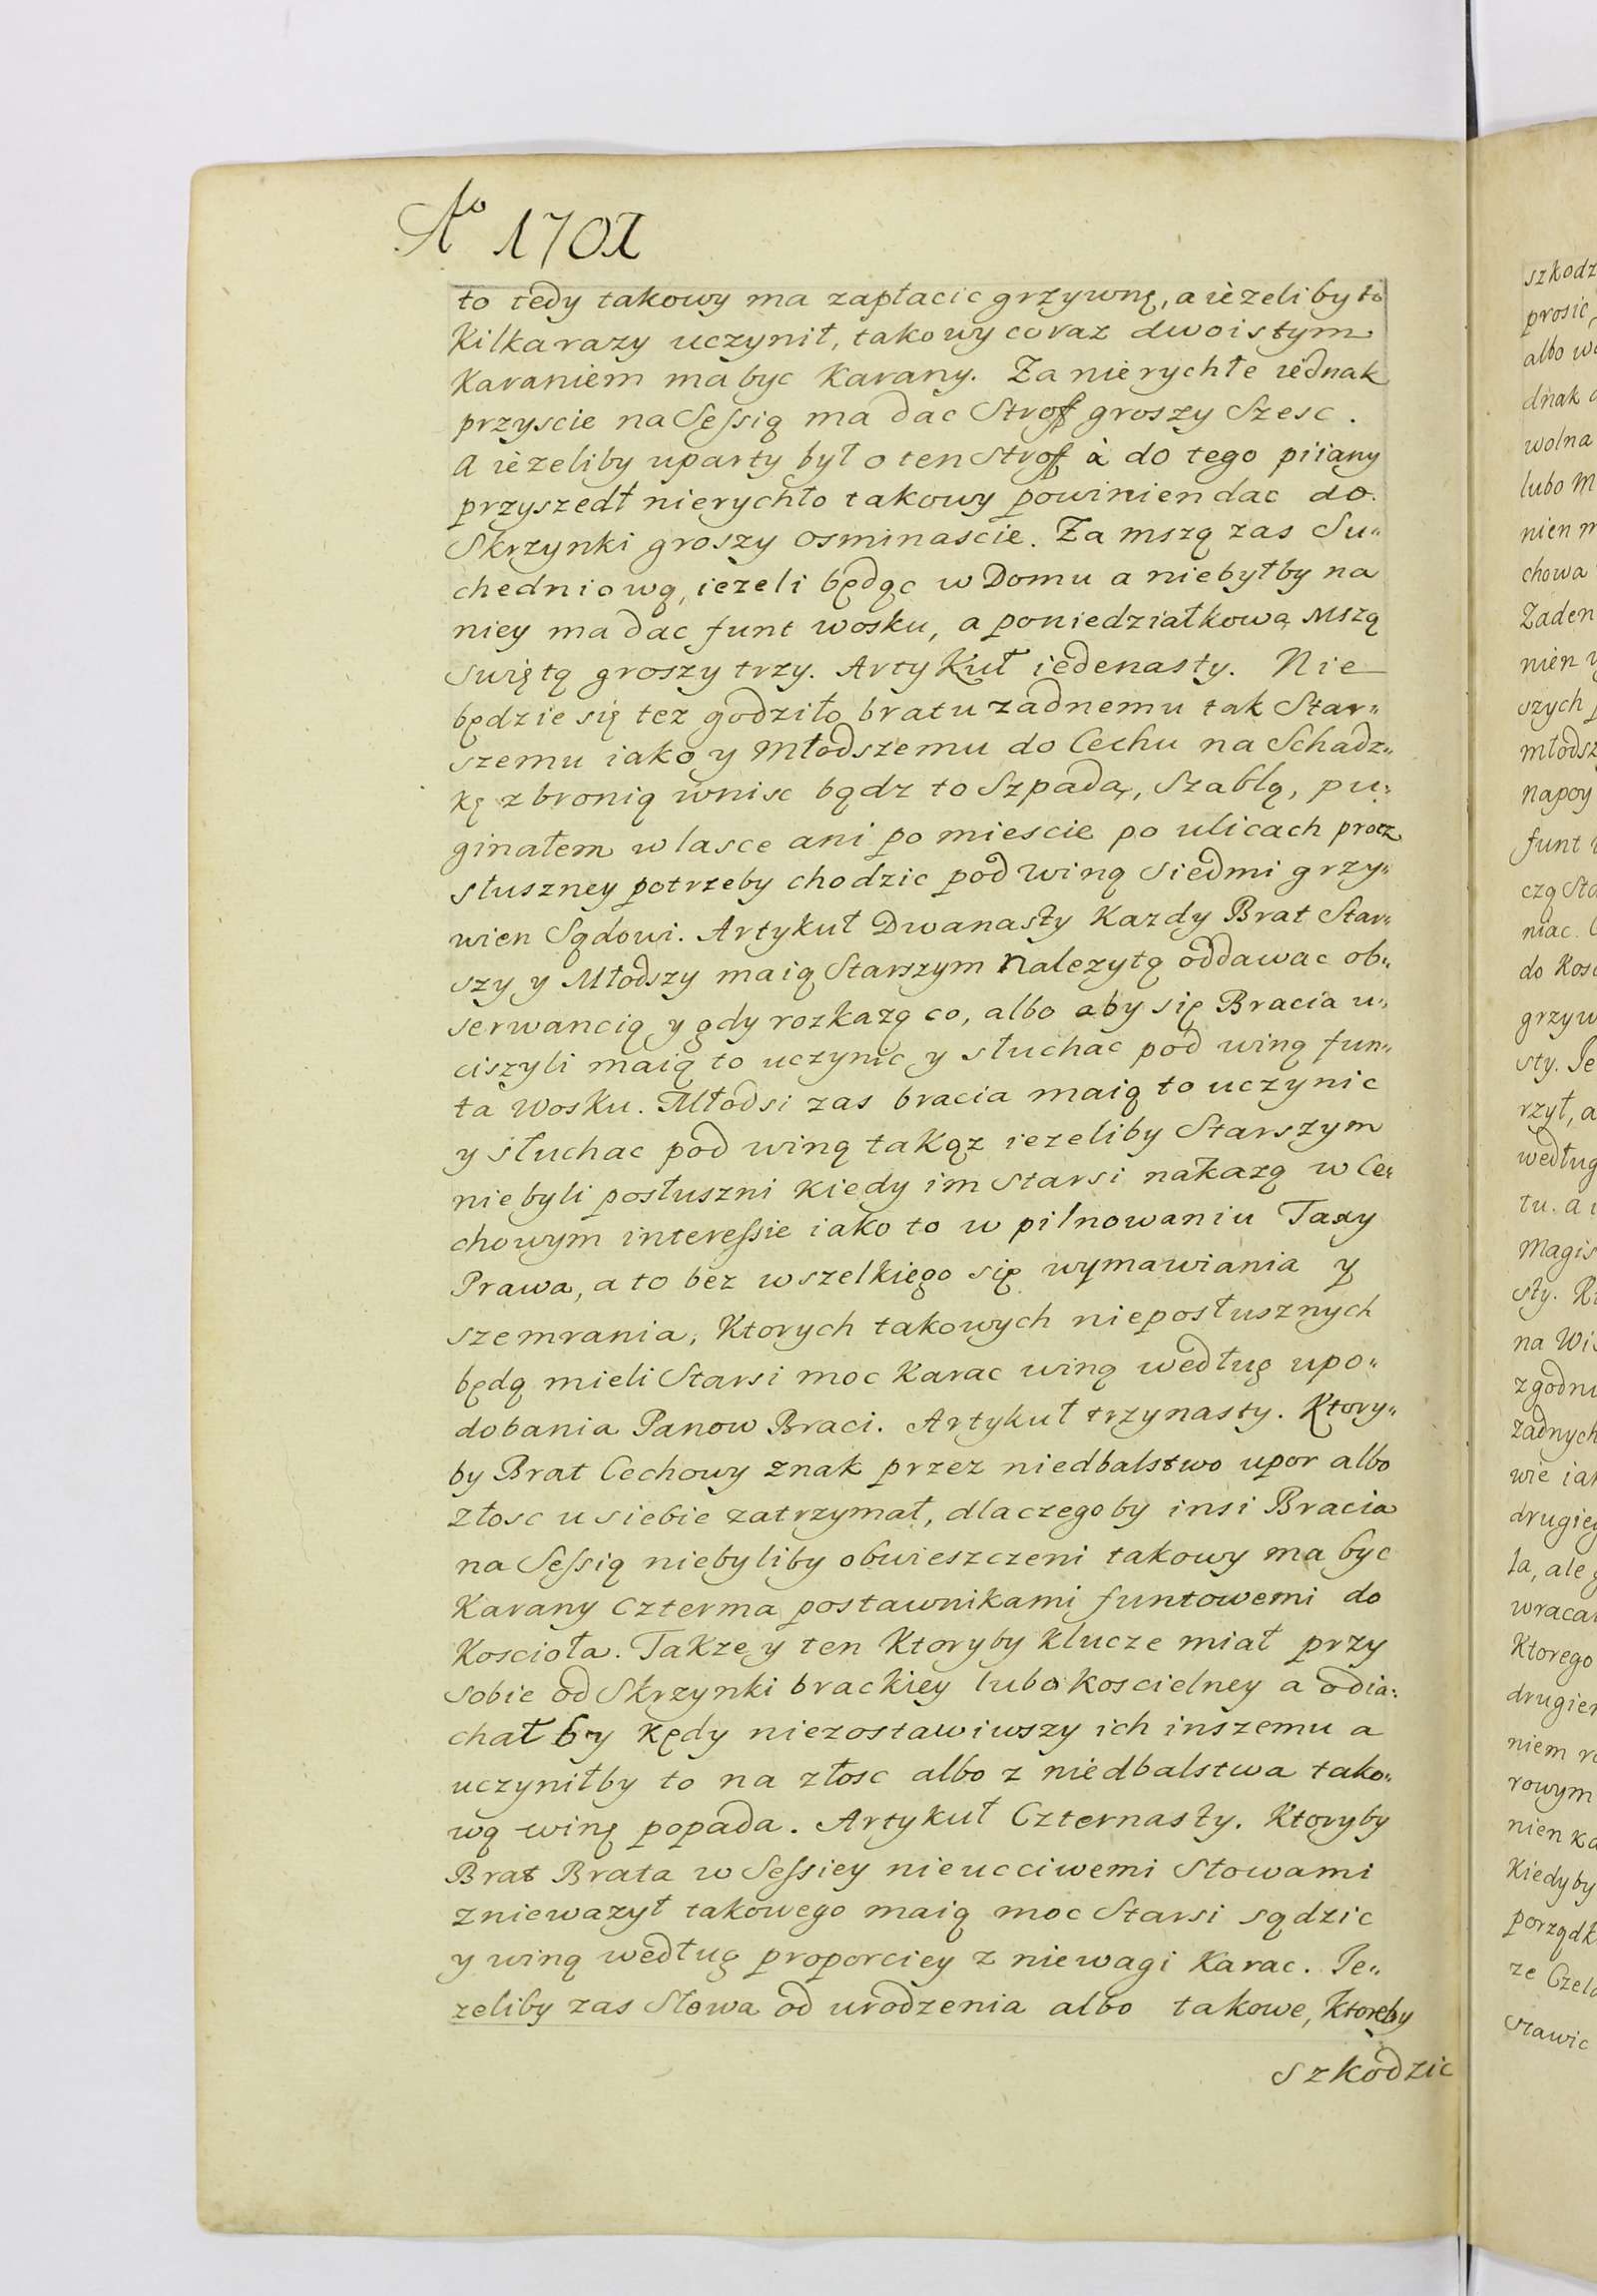 Aº 1701
to tedy takowy ma zapłacic grzywnę, a ieżeliby to
Kilka razy uczynił, takowy coraz dwoistym
Karaniem ma byc Karany. Za nierychłe iednak
przyscie na Seſsią ma dac Stroff groszy Szesc.
A ieżeliby uparty był o ten Stroff à do tego piiany
przyszedł nierychło takowy powinien dac do
Skrzynki groszy osminascie. Za mszą zas Su„
chedniową, iezeli będąc w Domu a niebyłby na
niey ma dac funt wosku, a poniedziałkową Mszą
Swiętą groszy trzy. Artykuł iedenasty. Nie
będzie się tez godziło bratu zadnemu tak Star„
szemu iako y Młodszemu do Cechu na Schadz„
kę z bronią wniść bądz to Szpadą, Szablą, pu„
ginałem w lasce ani po miescie po ulicach procz
słuszney potrzeby chodzic pod winą Siedmi grzy„
wien Sądowi. Artykuł Dwanasty Kazdy Brat Star„
szy y Młodszy maią Starszym nalezytą oddawac ob„
serwancią y gdy rozkazą co, albo aby się Bracia u„
ciszyli maią to uczynic y słuchac pod winą fun„
ta wosku. Młodsi zas bracia maią to uczynic
y słuchac pod winą takąz iezeliby Starszym
niebyli posłuszni kiedy im Starsi nakazą w Ce„
chowym intereſsie iako to w pilnowaniu Taxy
Prawa, a to bez wszelkiego się wymawiania y
szemrania, Ktorych takowych nieposłusznych
będą mieli Starsi moc Karac winą według upo„
dobania Panow Braci. Artykuł trzynasty. Ktory„
by Brat Cechowy znak przez niedbalstwo upor albo
złosc u siebie zatrzymał, dlaczegoby insi Bracia
na Seſsią niebyliby obwieszczeni takowy ma byc
Karany Czterma postawnikami funtowemi do
Koscioła. Takze y ten Ktoryby Klucze miał przy
sobie od Skrzynki brackiey lubo koscielney a odia„
chał by kędy niezostawiwszy ich inszemu a
uczyniłby to na złosc albo z niedbalstwa tako„
wą winę popada. Artykuł Czternasty. Ktoryby
Brat Brata w Seſsiey nieucciwemi Słowami
zniewazył takowego maią moc Starsi sądzic
y winą według proporciey zniewagi Karac. Ie„
zeliby zas Słowa od urodzenia albo takowe, Ktoreby
szkodzic
szkodz
prosic,
albo w
dnak
wolna
lubo M
nien
chowa
Zaden
nien
szych
młodsz
napoy
funt
czą Sta
niac.
do Kos
grzyw
sty. Je
rzył, a
według
tu. a
Magis
sty.
na Wi
zgodn
zadnych
wie iak
drugieg
la, ale
wracai
Ktorego
drugier
niem
rowym
nien Ka
Kiedyby
porządk
ze Czela
stawic